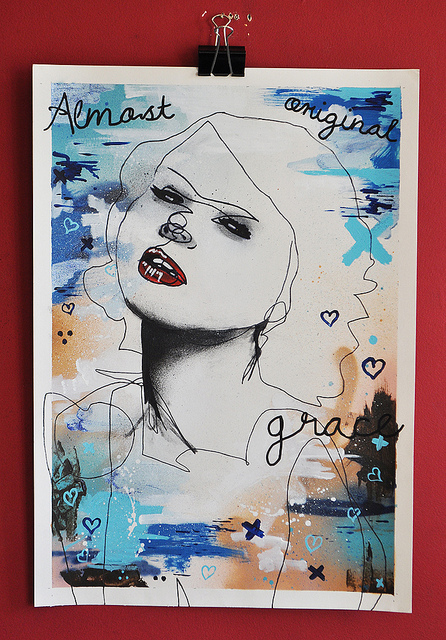 Almost original
grace